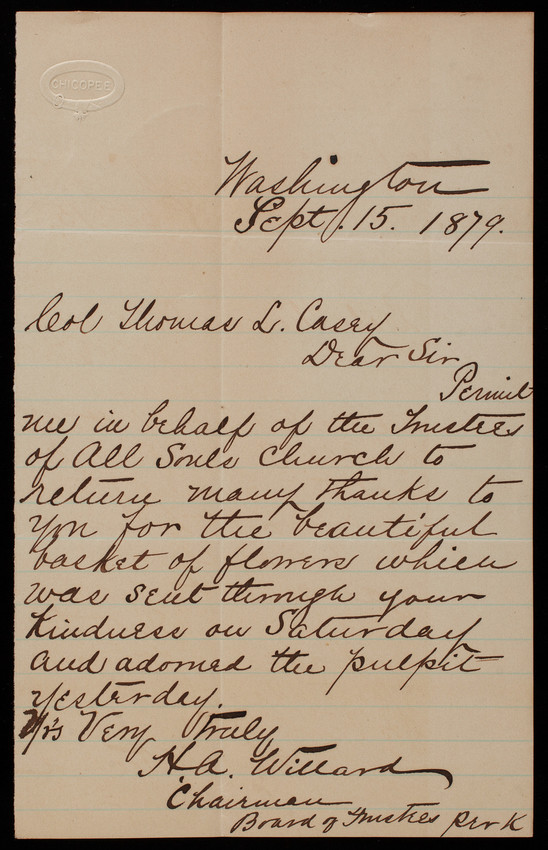 CHICOPEE
Washington
Sept. 15. 1879.
Col Thomas L. Casey
Dear Sir
Permit
me in behalf of the Trustees
of All Souls Church to
return many thanks to
you for the beautiful
basket of flowers which
was sent through your
kindness on Saturday
and adorned the pulpit
yesterday.
Yrs Very Truly
H A. Willard
Chairman
Board of Trustees per K